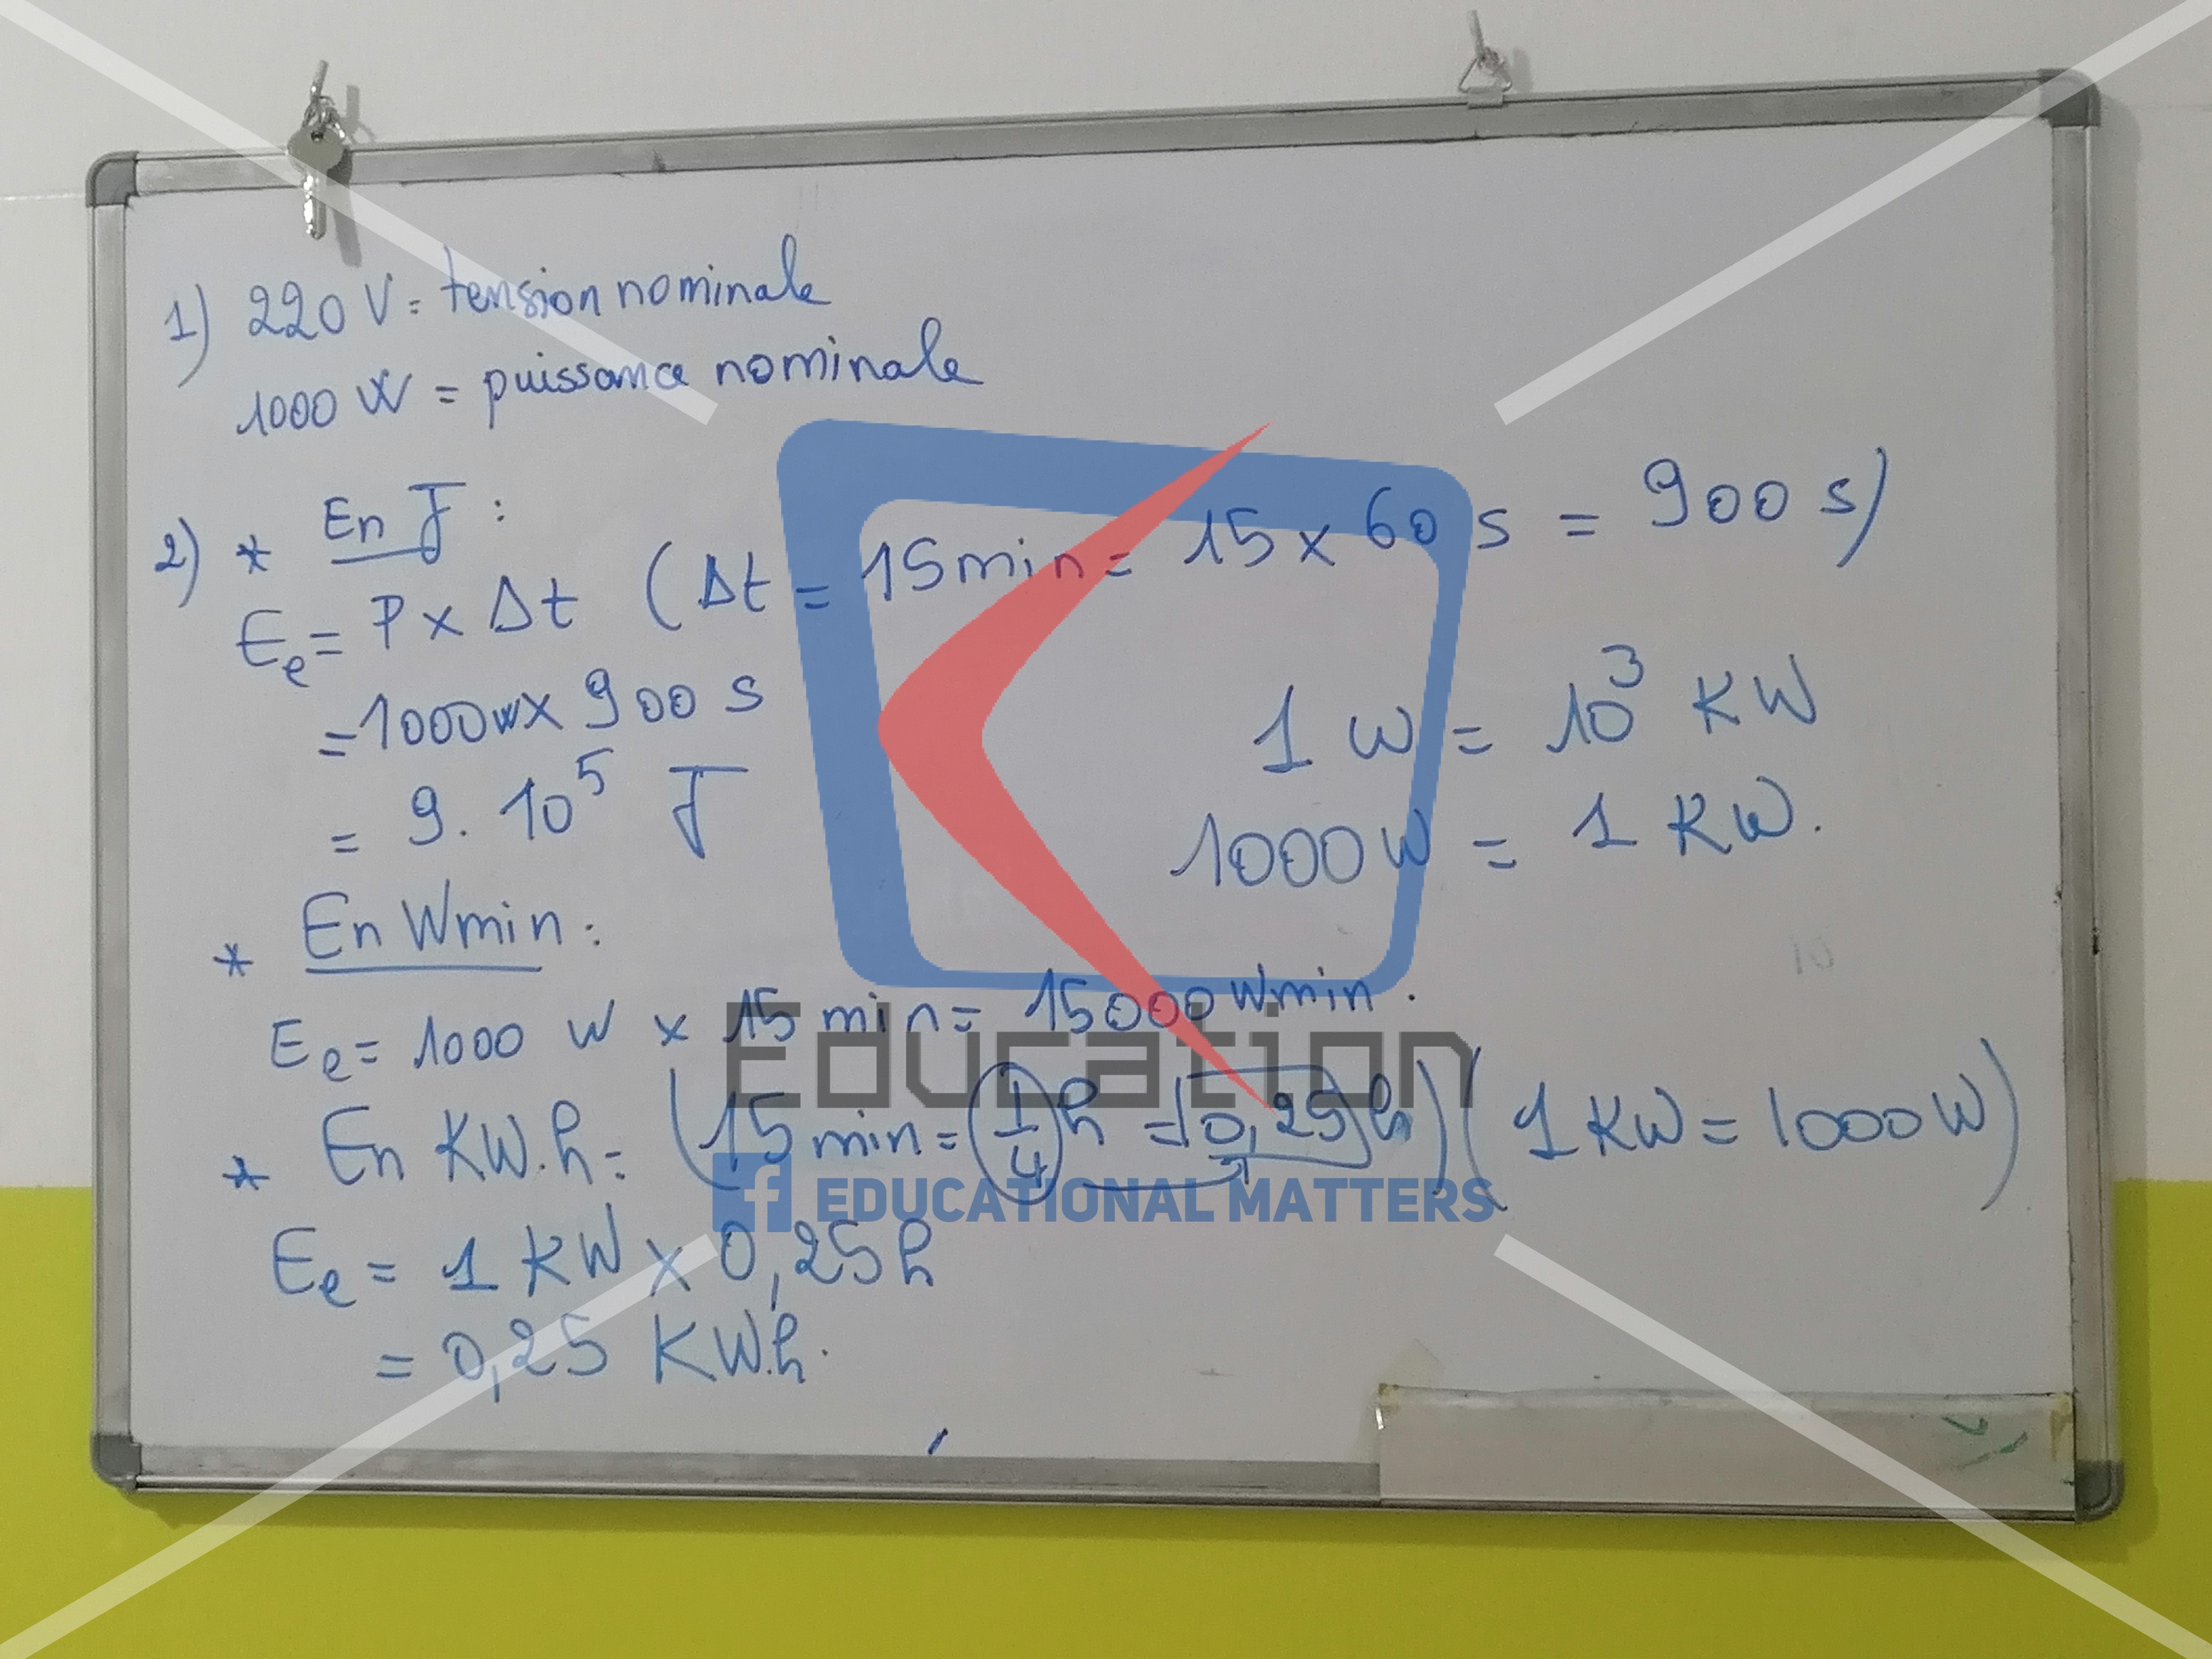 1) 220 V = tension nominale
1000 W = puissance nominale
2) * En J :
Ee = P x Δt (Δt = 15 min = 15 x 60 s = 900 s)
= 1000 w x 900 s
= 9. 10⁵ J
1 w = 10³ KW
1000 W = 1 KW.
* En Wmin :
Ee = 1000 W x 15 min = 15000 Wmin.
* En KW.h = (15 min = 1/4 h = 0,25 h) (1 KW = 1000 W)
Ee = 1 KW x 0,25 h
= 0,25 KW.h.
Education
f EDUCATIONAL MATTERS